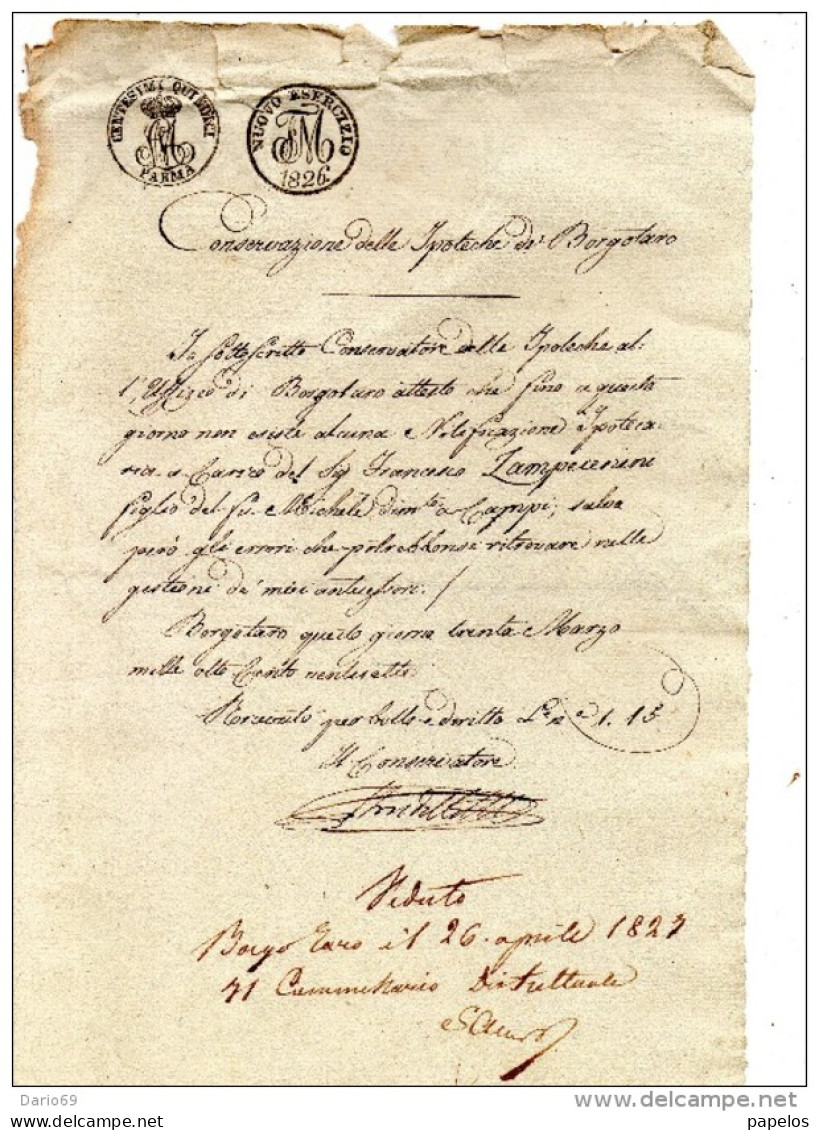 CENTESIMI QUINDICI
PARMA
NUOVO ESERCIZIO
1826
Conservazione delle Ipoteche di Borgotaro
Io sottoscritto Conservatore delle Ipoteche al-
l'Uffizio di Borgotaro attesto che fino a questo
giorno non esiste alcuna Notificazione Ipoteca-
ria a Carico del Sig Francesco
figlio del fu Michele dimte a Campi; salvo
però gli errori che potrebbonsi ritrovare nella
gestione de' miei antecessori. /
Borgotaro questo giorno trenta Marzo
mille otto Cento ventisette
Ricevuto per bollo e diritto Le ne 1. 15
Il Conservatore
Veduto
Borgo Taro il 26 aprile 1827
Il Commissario Distrettuale
Dario69
delcampe.net
papelos